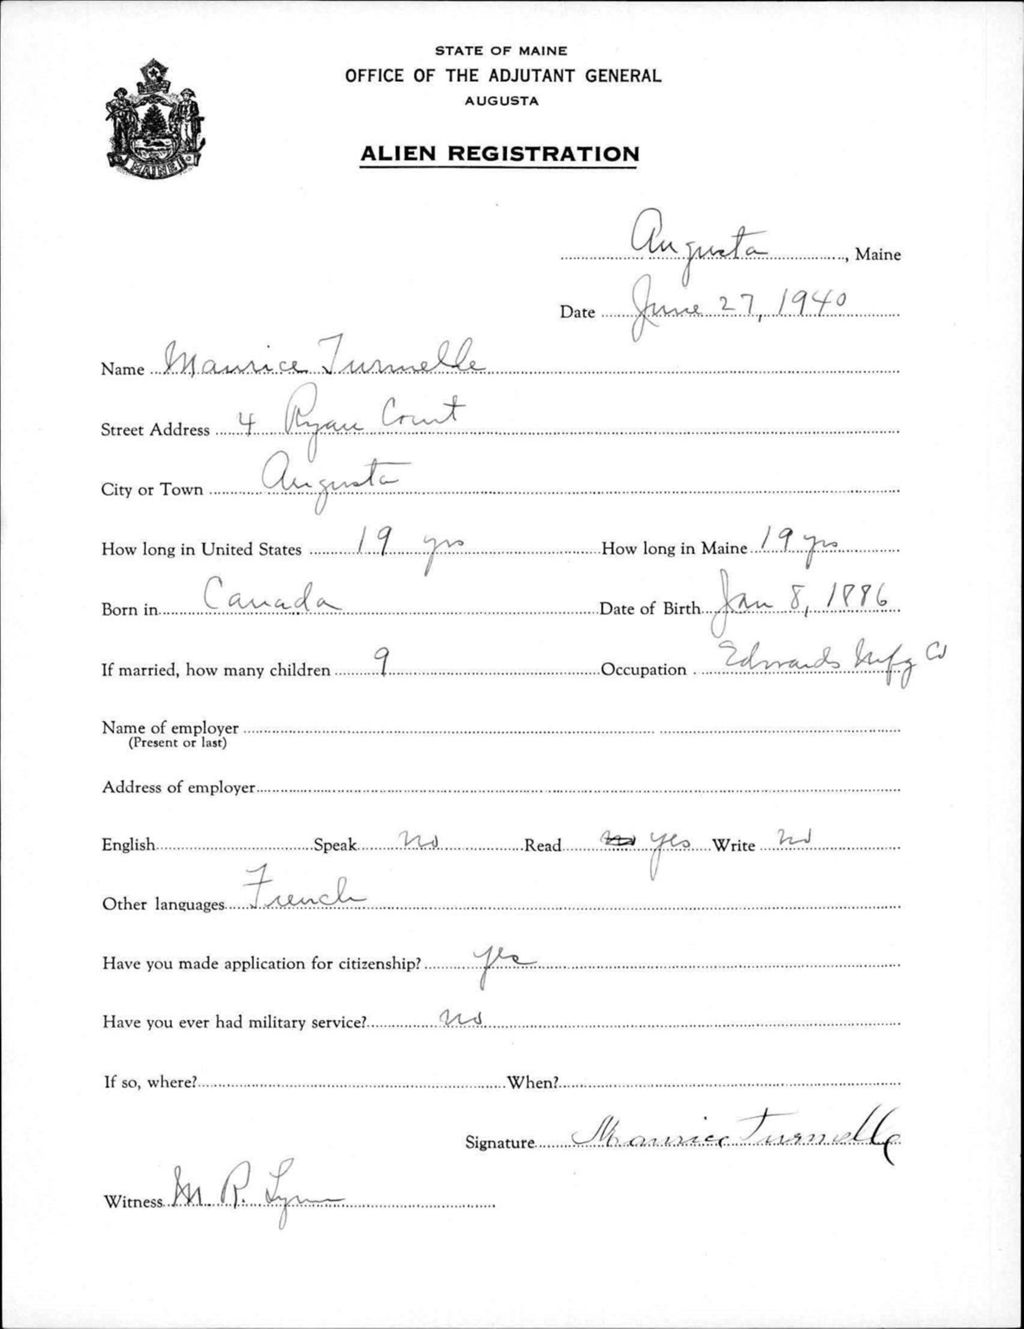 STATE OF MAINE
OFFICE OF THE ADJUTANT GENERAL
AUGUSTA
ALIEN REGISTRATION
MAINE
Augusta, Maine
Date June 27, 1940
Name Maurice Turmelle
Street Address 4 Ryan Court
City or Town Augusta
How long in United States 19 yrs How long in Maine 19 yrs
Born in Canada Date of Birth Jan 8, 1886
If married, how many children 9 Occupation Edwards Mfg Co
Name of employer
(Present or last)
Address of employer
English Speak No Read no yes Write No
Other languages French
Have you made application for citizenship? yes
Have you ever had military service? no
If so, where? When?
Signature Maurice Turmelle
Witness M. R. Lynn